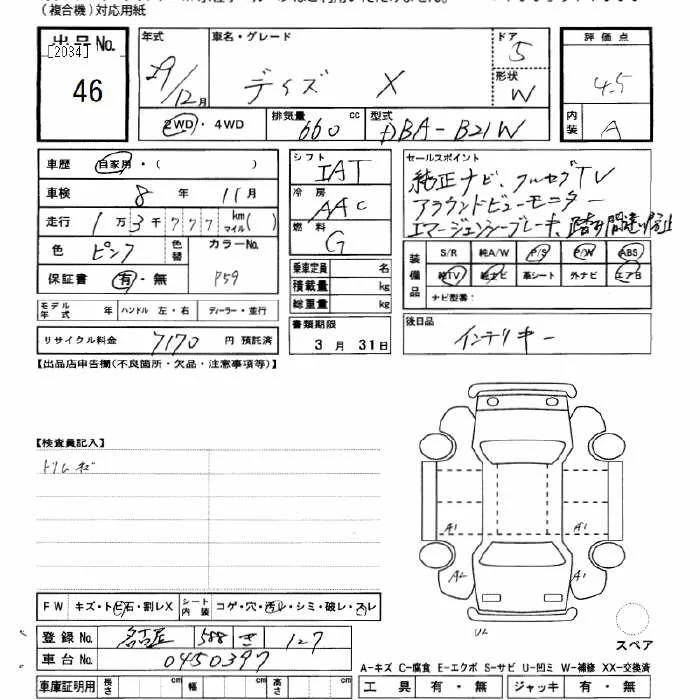 (複合機)対応用紙
出品No.
[2034]
46
年式 29/12月
車名・グレード
デイズ X
ドア 5
形状 W
評価点 4.5
内装 A
2WD・4WD
排気量 660 cc
型式 DBA-B21W
車歴 自家用・( )
車検 8年 11月
走行 1万3千777 km マイル( )
色 ピンク
色替
カラーNo. P59
保証書 有・無
モデル年式 年 ハンドル 左・右 ディーラー・並行
リサイクル料金 7170 円 預託済
シフト IAT
冷房 AAC
燃料 G
乗車定員 名
積載量 kg
総重量 kg
書類期限
3月 31日
セールスポイント
純正ナビ、フルセグTV
アラウンドビューモニター
エマージェンシーブレーキ、踏み間違い防止
装備品
S/R 純A/W P/S P/W ABS
純TV 純ナビ 革シート 外ナビ エアB
ナビ型番:
後日品
インテリキー
【出品店申告欄(不良箇所・欠品・注意事項等)】
【検査員記入】
トリムキズ
FW キズ・トビ石・割レX
シート内装 コゲ・穴・汚レ・シミ・破レ・スレ
登録No. 名古屋 588 き 127
車台No. 0450397
車庫証明用 長さ cm 幅 cm 高さ cm
A1 A1
A2 A2
U2
スペア
A-キズ C-腐食 E-エクボ S-サビ U-凹ミ W-補修 XX-交換済
工具 有・無 ジャッキ 有・無